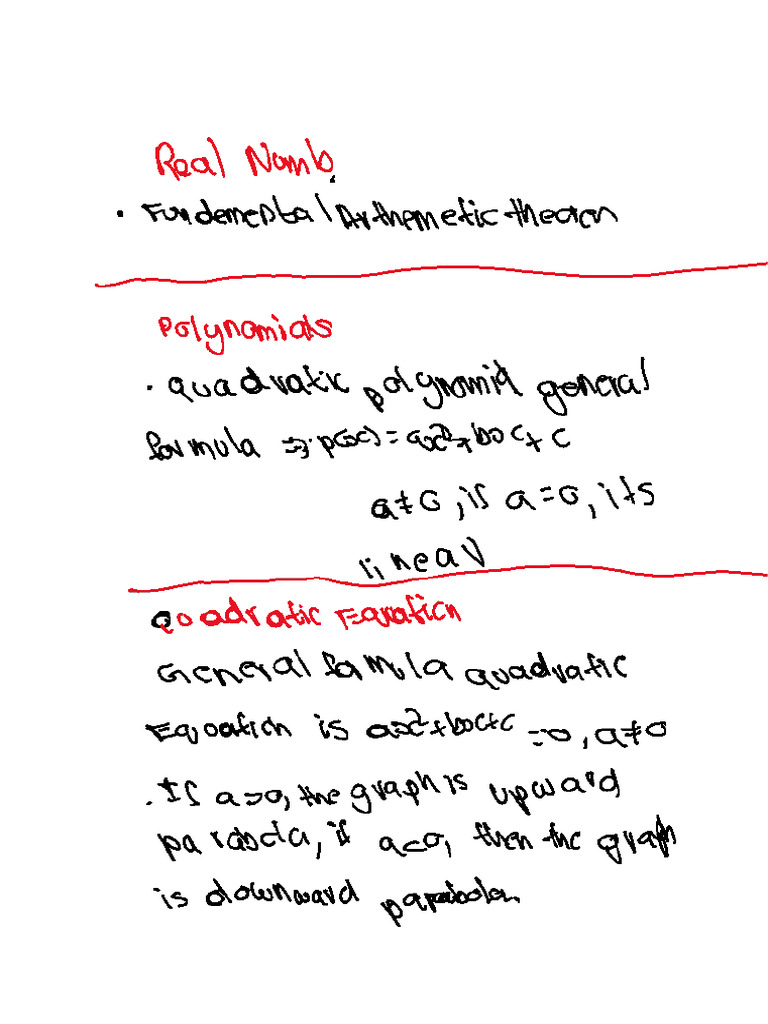 Real Numb.
• Fundemental Arthemetic theoren
Polynomials
• quadratic polynomial general
formula => p(x) = ax²+bx+c
a≠0, if a=0, its
linear
Quadratic Equation
General formula quadratic
Equation is ax²+bx+c=0, a≠0
. If a>0, the graph is upward
parabola, if a<0, then the graph
is downward parabola.